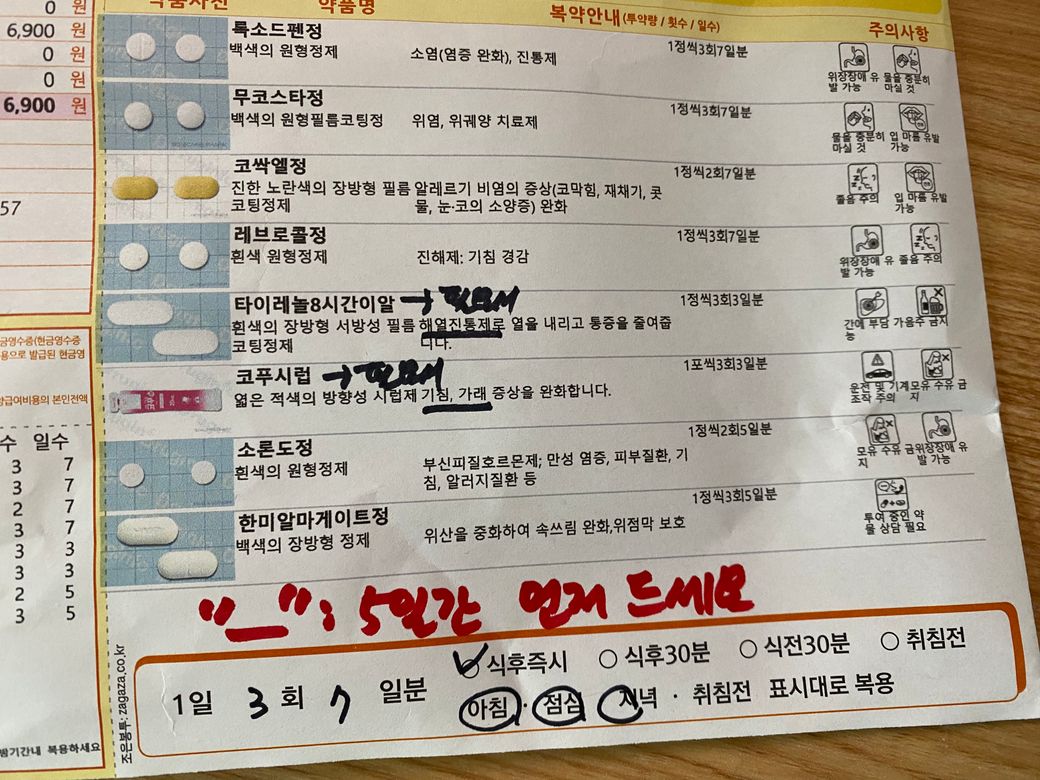 0 원
6,900 원
0 원
0 원
6,900 원
57
약품사진 약품명 복약안내(투약량 / 횟수 / 일수) 주의사항
록소드펜정
백색의 원형정제 소염(염증 완화), 진통제 1정씩3회7일분
위장장애 유발 가능 물을 충분히 마실 것
무코스타정
백색의 원형필름코팅정 위염, 위궤양 치료제 1정씩3회7일분
물을 충분히 마실 것 입 마름 유발 가능
코싹엘정
진한 노란색의 장방형 필름코팅정제 알레르기 비염의 증상(코막힘, 재채기, 콧물, 눈·코의 소양증) 완화 1정씩2회7일분
졸음 주의 입 마름 유발 가능
레브로콜정
흰색 원형정제 진해제: 기침 경감 1정씩3회7일분
위장장애 유발 가능 졸음 주의
타이레놀8시간이알 → 필요시
흰색의 장방형 서방성 필름코팅정제 해열진통제로 열을 내리고 통증을 줄여줍니다. 1정씩3회3일분
간에 부담 가능 음주 금지
코푸시럽 → 필요시
엷은 적색의 방향성 시럽제 기침, 가래 증상을 완화합니다. 1포씩3회3일분
운전 및 기계조작 주의 모유 수유 금지
소론도정
흰색의 원형정제 부신피질호르몬제; 만성 염증, 피부질환, 기침, 알러지질환 등 1정씩2회5일분
모유 수유 금지 위장장애 유발 가능
한미알마게이트정
백색의 장방형 정제 위산을 중화하여 속쓰림 완화,위점막 보호 1정씩3회5일분
투여 중인 약물 상담 필요
"_": 5일간 먼저 드세요
식후즉시 식후30분 식전30분 취침전
1일 3 회 7 일분 아침 · 점심 · 저녁 · 취침전 표시대로 복용
조은봉투: zagaza.co.kr
금영수증(현금영수증
용으로 발급된 현금영
강급여비용의 본인전액
수 일수
3 7
3 7
2 7
3 7
3 3
3 3
2 5
3 5
범기간내 복용하세요